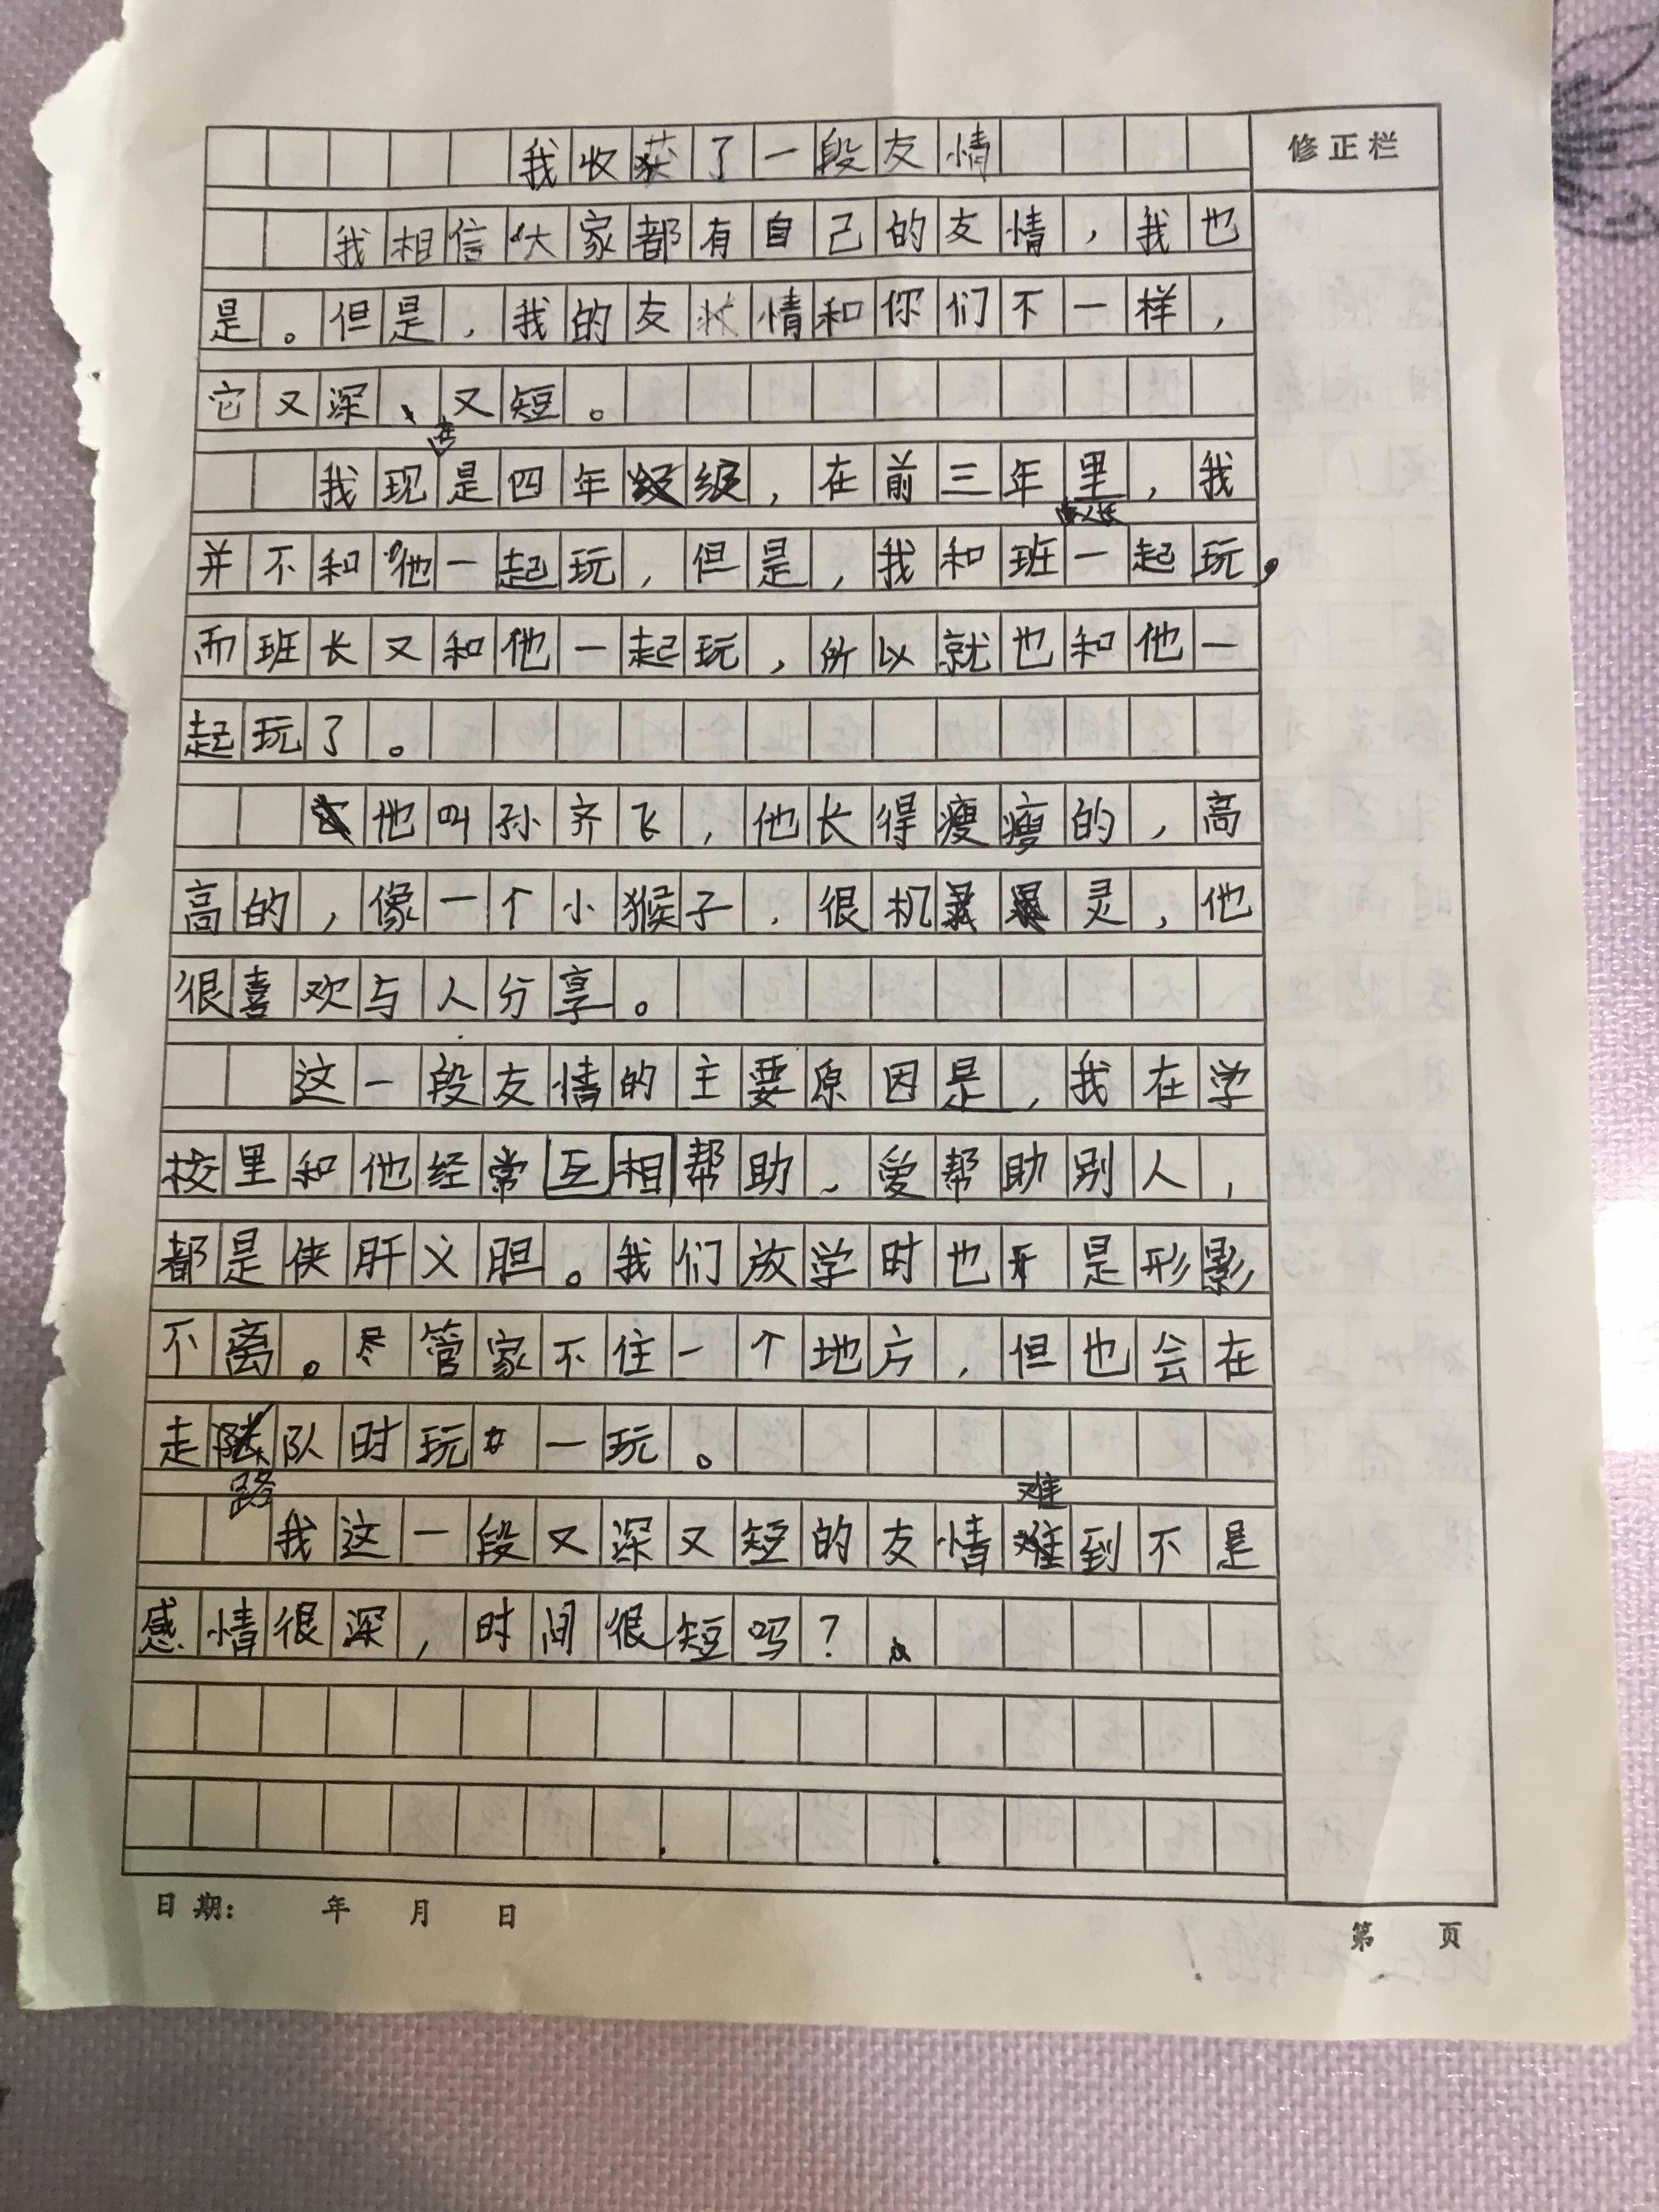 修正栏
我收获了一段友情
我相信大家都有自己的友情，我也
是。但是，我的友情和你们不一样，
它又深、又短。
在
我现是四年级，在前三年里，我
并不和他一起玩，但是，我和班一起玩，
而班长又和他一起玩，所以就也和他一
起玩了。
他叫孙齐飞，他长得瘦瘦的，高
高的，像一个小猴子，很机灵，他
很喜欢与人分享。
这一段友情的主要原因是，我在学
校里和他经常互相帮助、爱帮助别人，
都是侠肝义胆。我们放学时也是形影
不离。尽管家不住一个地方，但也会在
走队时玩一玩。
路
难
我这一段又深又短的友情难到不是
感情很深，时间很短吗？
日期： 年 月 日
第 页